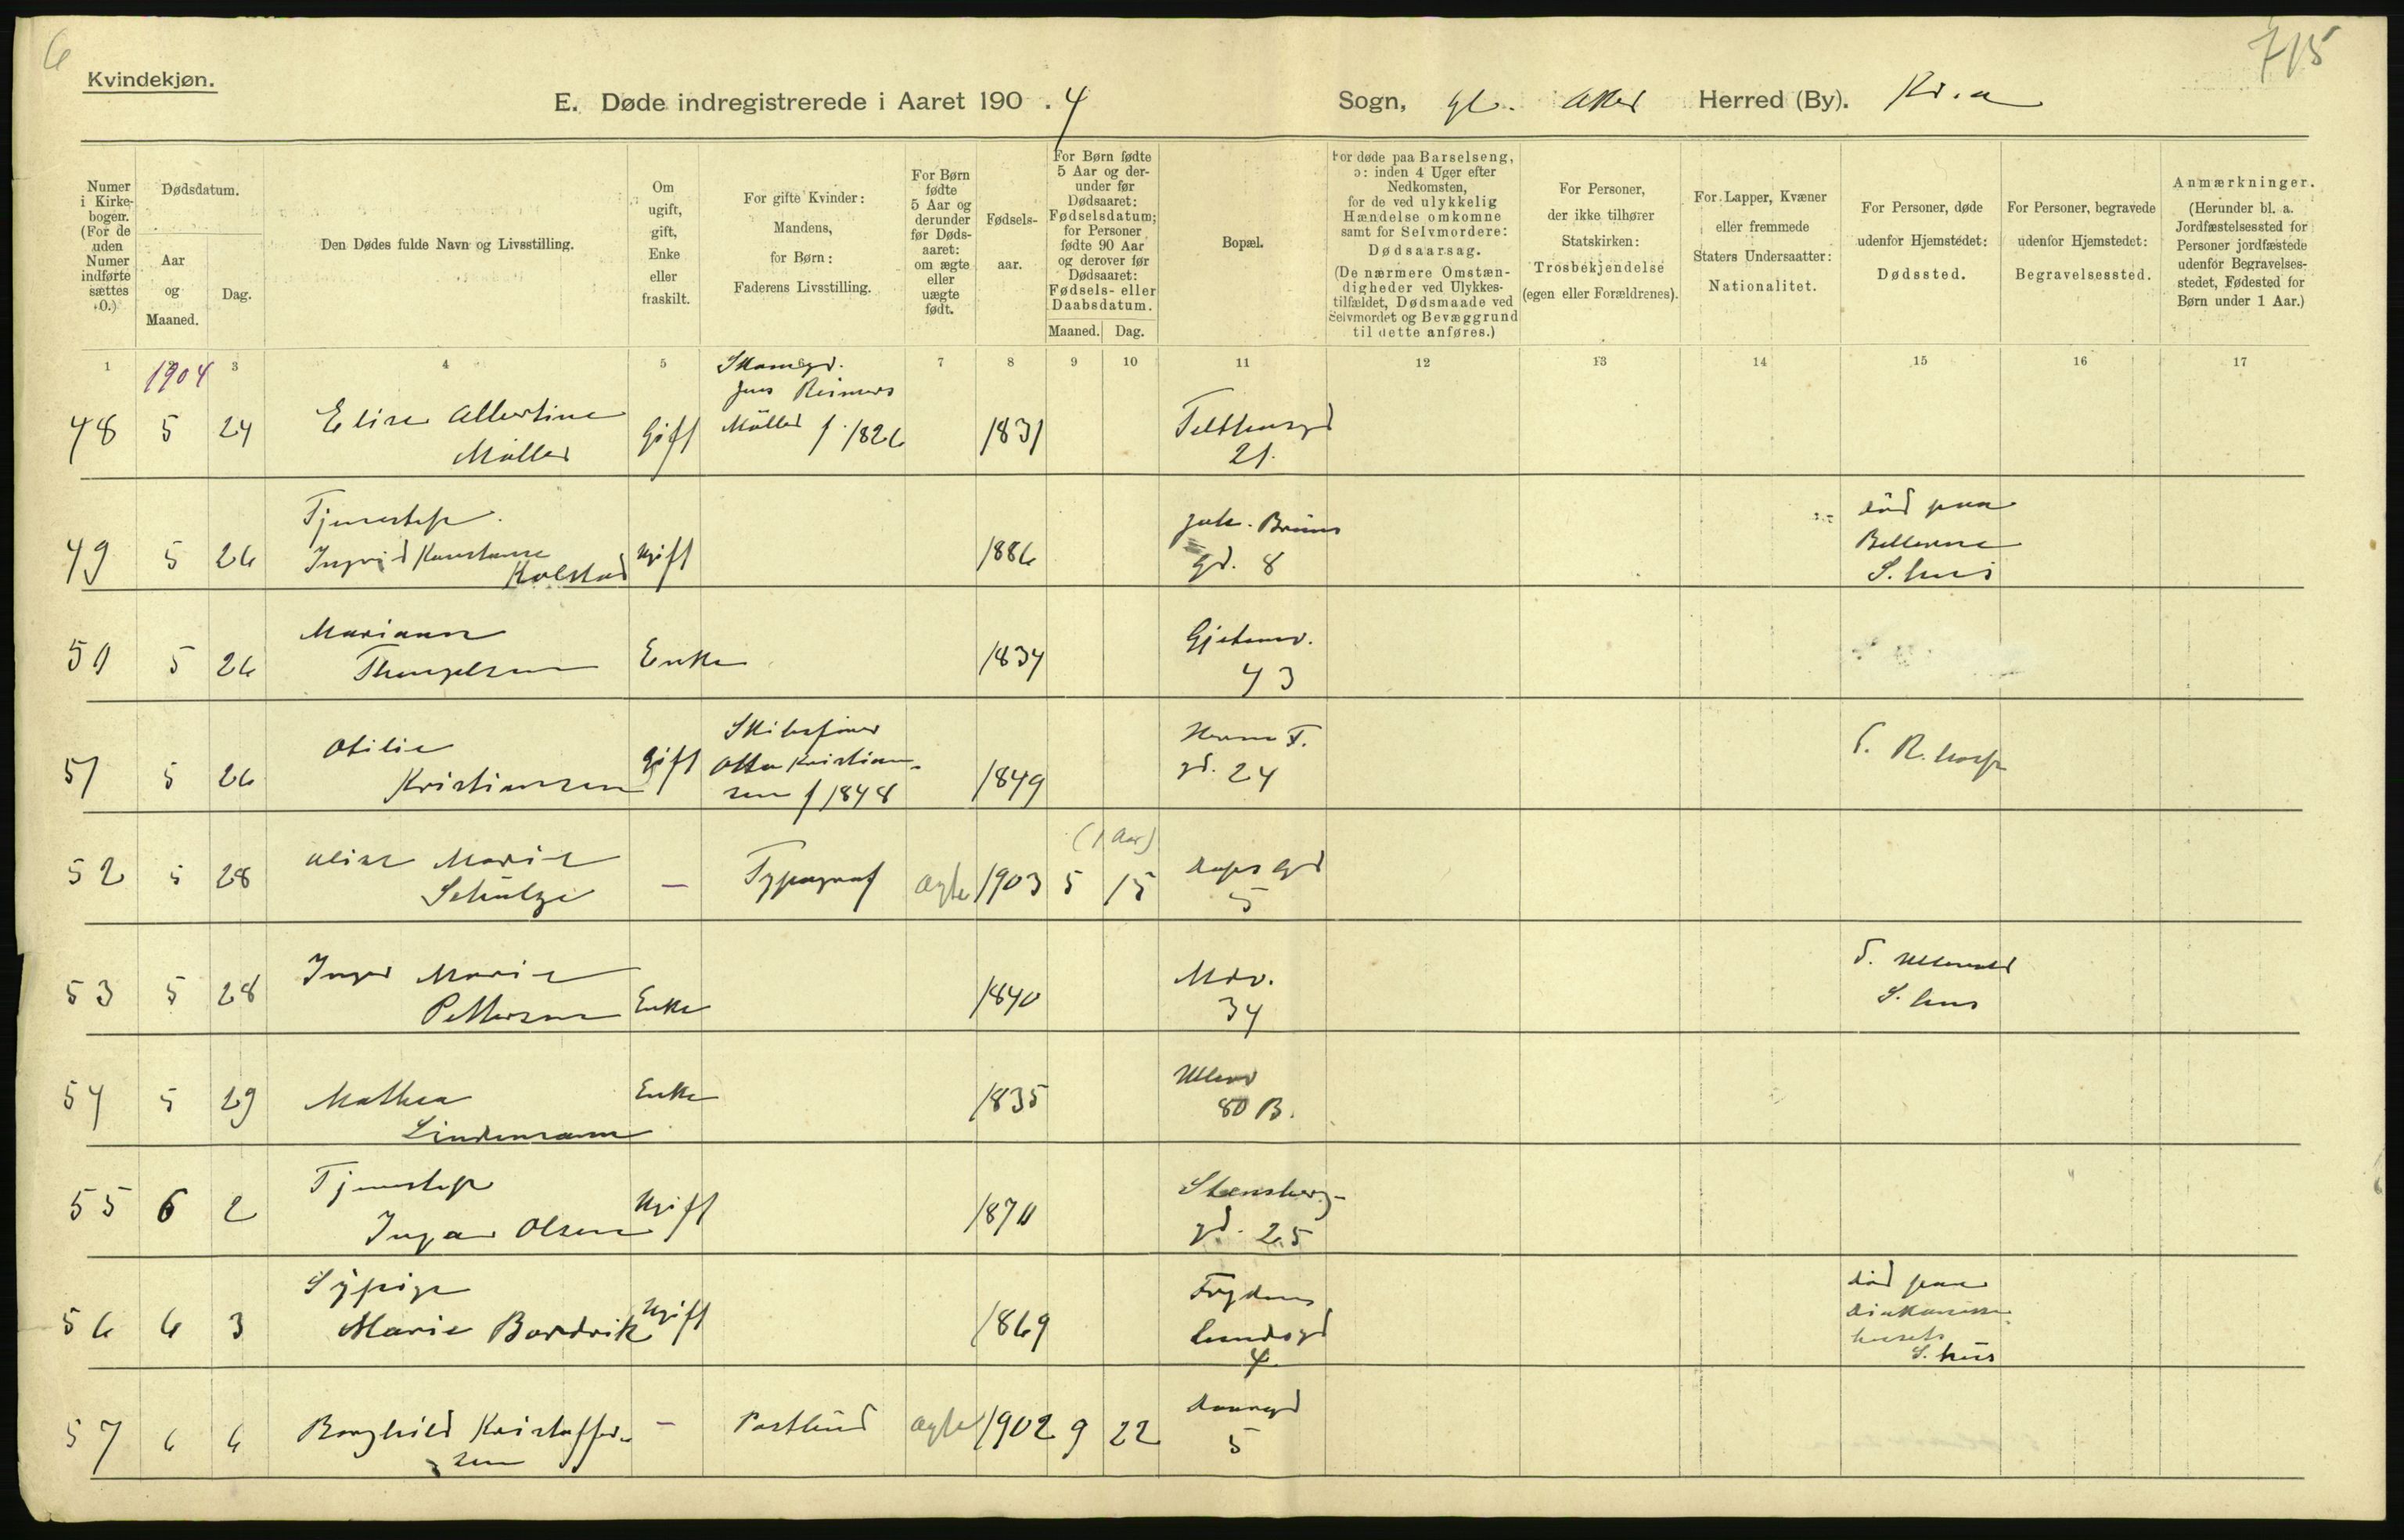 6
715
Kvindekjøn.
E. Døde indregistrerede i Aaret 190 . 4 Sogn, Gl. Aker Herred (By). Kr.a
Numer i Kirkebogen. (For de uden Numer indførte sættes 0.)
Dødsdatum.
Aar og Maaned.
Dag.
Den Dødes fulde Navn og Livsstilling.
Om ugift, gift, Enke eller fraskilt.
For gifte Kvinder: Mandens, for Børn: Faderens Livsstilling.
For Børn fødte 5 Aar og derunder før Dødsaaret: om ægte eller uægte født.
Fødselsaar.
For Børn fødte 5 Aar og derunder før Dødsaaret: Fødselsdatum; for Personer fødte 90 Aar og derover før Dødsaaret: Fødsels- eller Daabsdatum.
Maaned. Dag.
Bopæl.
For døde paa Barselseng, ɔ: inden 4 Uger efter Nedkomsten, for de ved ulykkelig Hændelse omkomne samt for Selvmordere: Dødsaarsag. (De nærmere Omstændigheder ved Ulykkestilfældet, Dødsmaade ved Selvmordet og Bevæggrund til dette anføres.)
For Personer, der ikke tilhører Statskirken: Trosbekjendelse (egen eller Forældrenes).
For Lapper, Kvæner eller fremmede Staters Undersaatter: Nationalitet.
For Personer, døde udenfor Hjemstedet: Dødssted.
For Personer, begravede udenfor Hjemstedet: Begravelsessted.
Anmærkninger. (Herunder bl. a. Jordfæstelsessted for Personer jordfæstede udenfor Begravelsesstedet, Fødested for Børn under 1 Aar.)
1 3 4 5 6 7 8 9 10 11 12 13 14 15 16 17
1904
48 5 24 Elise Albertine Møller Gift Jens Reimers Møller f. 1826 1831 Telthusgd 21.
49 5 26 Tjenestep. Ingrid Konstanse Kolstad Ugift 1886 Jak. Bruns gd. 8 død paa S. hus
50 5 26 Mariane Enke 1834 Gjetemv. 43
51 5 26 Otilie Kristiansen Gift Otto Kristiansen f 1848 1849 gd. 24 d. R. hosp
52 5 28 Alise Marie Schulze — Typograf ægte 1903 5 15 (1 Aar) Daps gd 5
53 5 28 Inger Marie Pettersen Enke 1840 Mdv. 34 d. Ullevaal S. hus
54 5 29 Mathea Lindemann Enke 1835 Ullev 80 B.
55 6 2 Tjenestep Inga Olsen Ugift 1870 Stensberg- gd. 25
56 6 3 Sypige Marie Bordvik Ugift 1869 Frydenlundsgd 4 død paa Diakonissehusets S. hus
57 6 6 Borghild Kristoffersen — Postbud ægte 1902 9 22 5